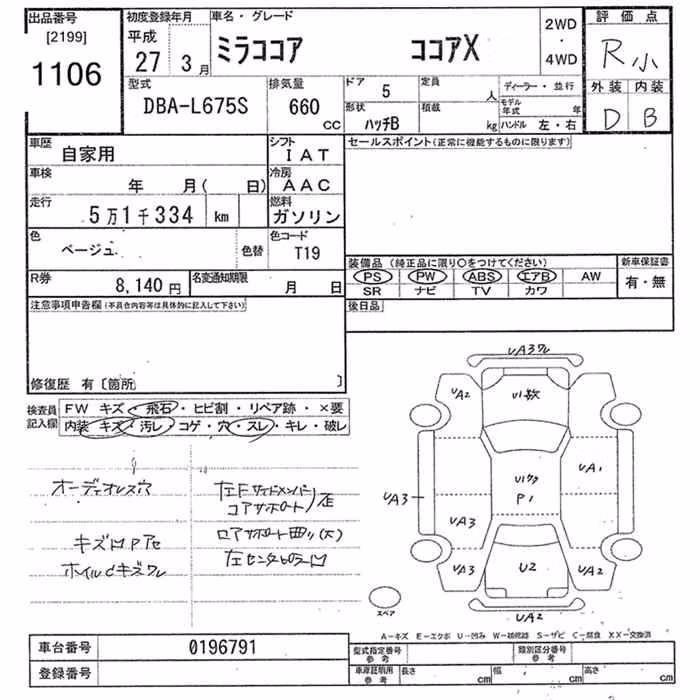 出品番号
[2199]
1106
初度登録年月
平成
27 3月
車名・グレード
ミラココア ココアX
2WD
・
4WD
評価点
R小
外装 内装
D B
型式
DBA-L675S
排気量
660
CC
ドア
5
定員
人
ディーラー・並行
形状
ハッチB
積載
kg
モデル年式 年
ハンドル 左・右
車歴
自家用
シフト
IAT
セールスポイント(正常に機能するものに限ります)
車検
年 月( 日)
冷房
AAC
走行
5万1千334 km
燃料
ガソリン
色
ベージュ
色替
色コード
T19
装備品(純正品に限り○をつけてください)
新車保証書
PS PW ABS エアB AW
SR ナビ TV カワ
有・無
R券
8,140円
名変通知期限
月 日
後日品
注意事項申告欄(不具合内容等は具体的に記入して下さい)
修復歴 有〔箇所 〕
検査員
記入欄
FW キズ・飛石・ヒビ割・リペア跡・×要
内装 キズ・汚レ・コゲ・穴・スレ・キレ・破レ
オーディオレス穴
キズ凹P
ホイルCキズワレ
左Fサイドメンバー
コアサポート
歪
ロアサポート凹リ(大)
左センタピラー凹
UA3ワレ
UA2
U1数
UA1
UA3
U1
P1
UA3
UA3
U2
UA2
UA2
スペア
A-キズ E-エクボ U-凹み W-補修跡 S-サビ C-腐食 XX-交換済
車台番号
0196791
登録番号
型式指定番号
参考
類別区分番号
参考
車庫証明用
参考
長さ cm
幅 cm
高さ cm